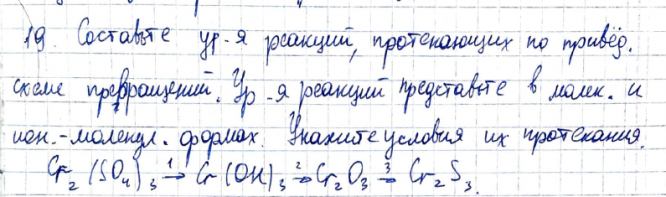 19. Составьте ур-я реакций, протекающих по привед.
схеме превращений. Ур-я реакций представьте в молек. и
ион.-молекул. формах. Укажите условия их протекания.
Cr₂(SO₄)₃ →¹ Cr(OH)₃ →² Cr₂O₃ →³ Cr₂S₃.